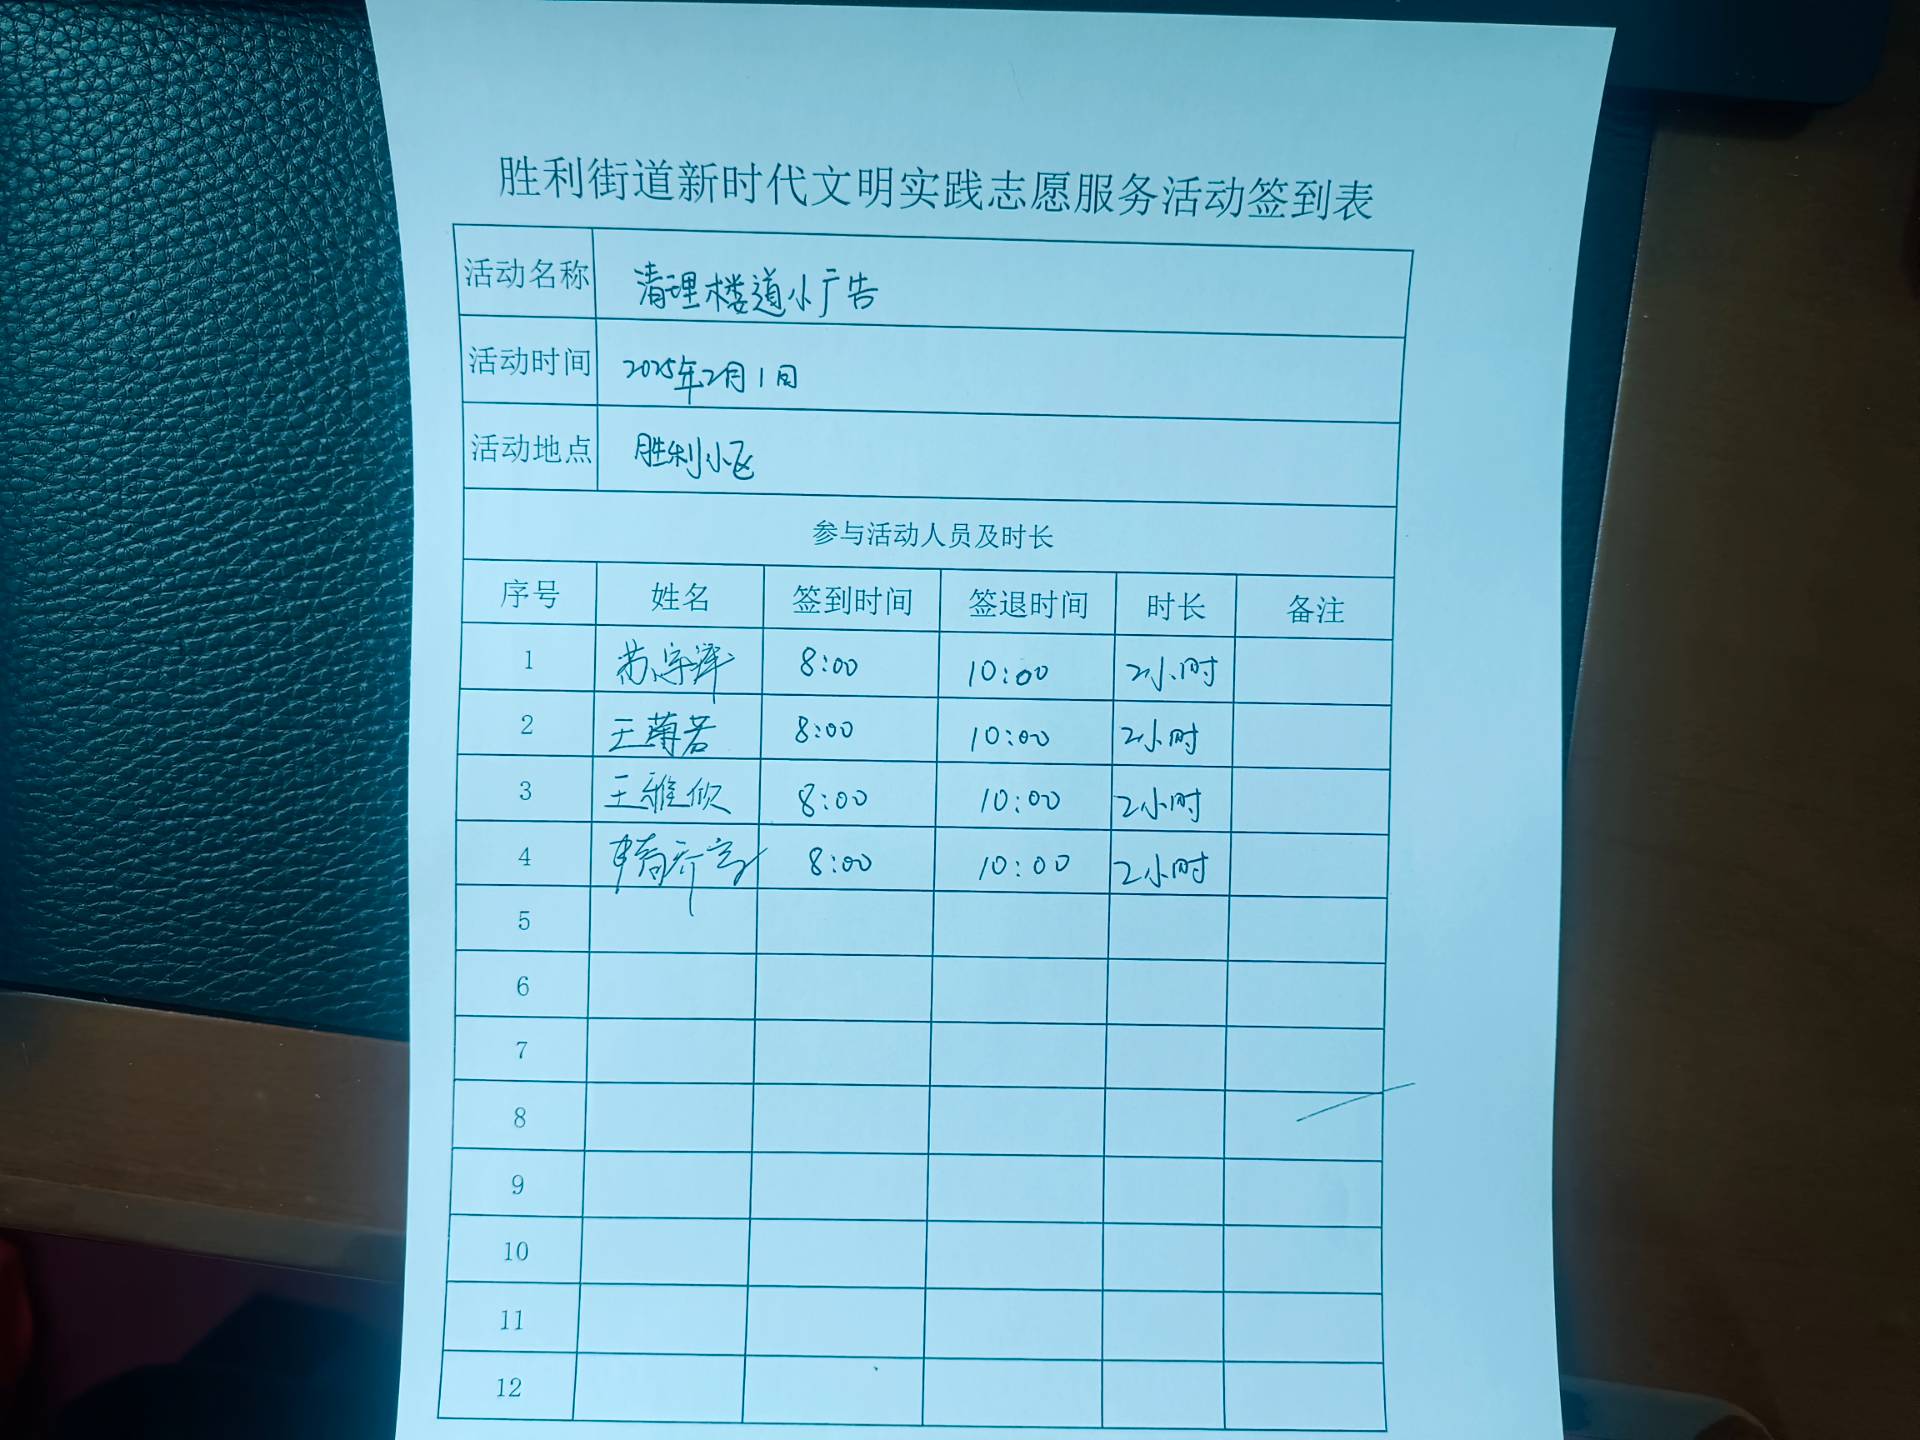 胜利街道新时代文明实践志愿服务活动签到表
活动名称 清理楼道小广告
活动时间 2025年2月1日
活动地点 胜利小区
参与活动人员及时长
序号 姓名 签到时间 签退时间 时长 备注
1 苏宇泽 8:00 10:00 2小时
2 王 8:00 10:00 2小时
3 王雅欣 8:00 10:00 2小时
4 8:00 10:00 2小时
5
6
7
8
9
10
11
12